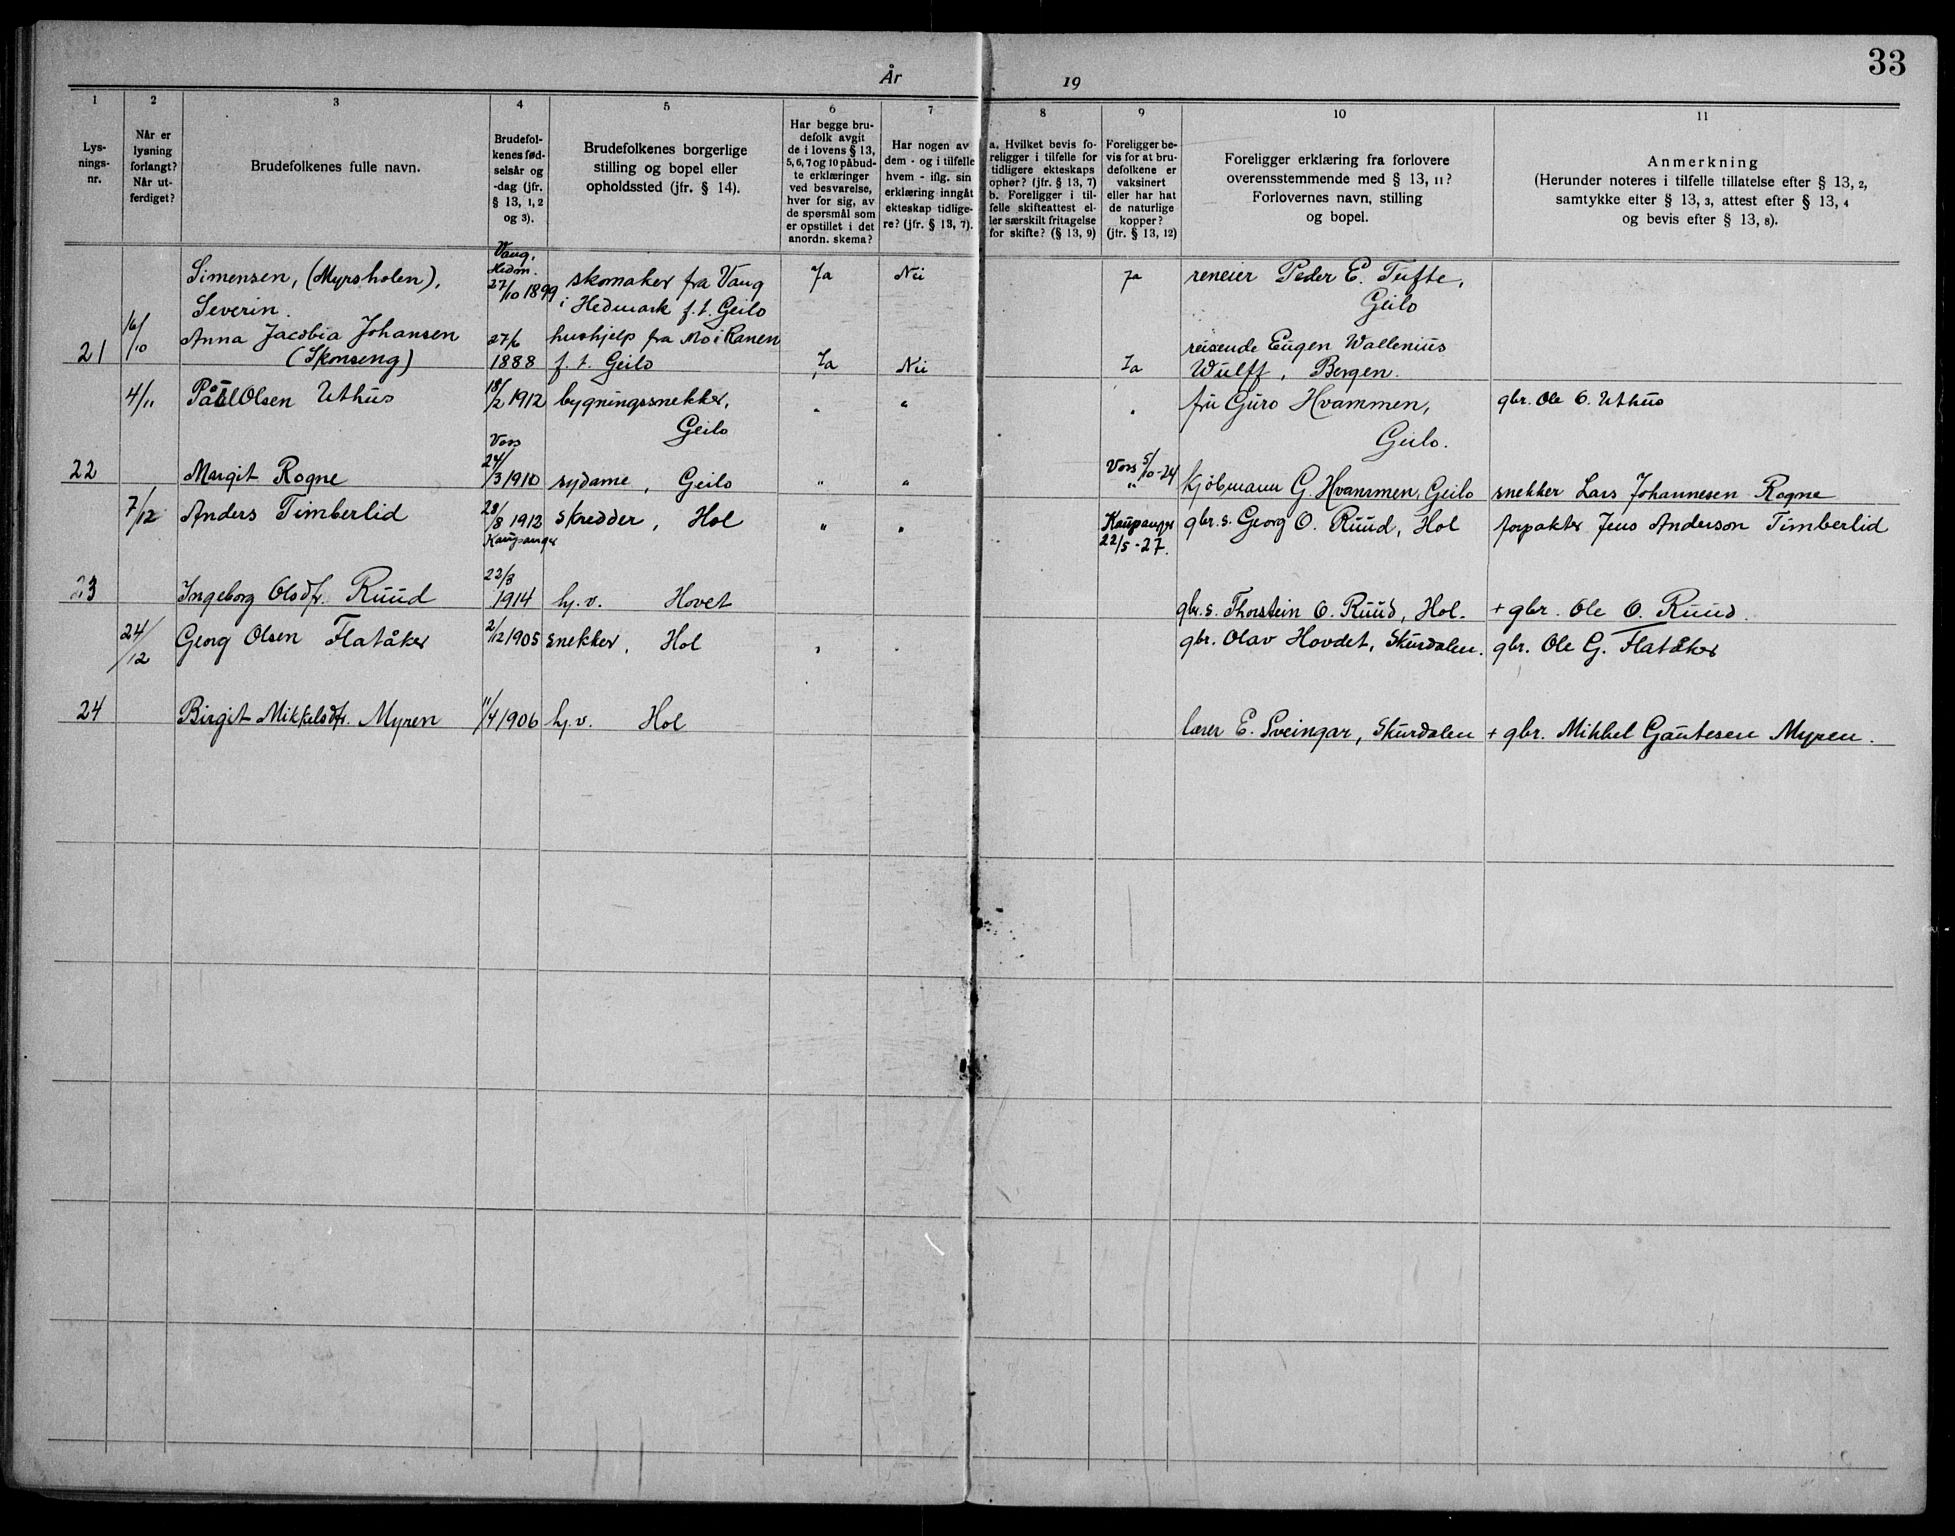 33
År 19
1 2 3 4 5 6 7 8 9 10 11
Lys-
nings-
nr.
Når er
lysning
forlangt?
Når ut-
ferdiget?
Brudefolkenes fulle navn.
Brudefol-
kenes fød-
selsår og
-dag (jfr.
§ 13, 1, 2
og 3).
Brudefolkenes borgerlige
stilling og bopel eller
opholdssted (jfr. § 14).
Har begge bru-
defolk avgit
de i lovens § 13,
5, 6, 7 og 10 påbud-
te erklæringer
ved besvarelse,
hver for sig, av
de spørsmål som
er opstillet i det
anordn. skema?
Har nogen av
dem - og i tilfelle
hvem - iflg. sin
erklæring inngåt
ekteskap tidlige-
re? (jfr. § 13, 7).
a. Hvilket bevis fo-
religger i tilfelle for
tidligere ekteskaps
ophør? (jfr. § 13, 7)
b. Foreligger i til-
felle skifteattest el-
ler særskilt fritagelse
for skifte? (§ 13, 9)
Foreligger be-
vis for at bru-
defolkene er
vaksinert
eller har hat
de naturlige
kopper?
(jfr. § 13, 12)
Foreligger erklæring fra forlovere
overensstemmende med § 13, 11?
Forlovernes navn, stilling
og bopel.
Anmerkning
(Herunder noteres i tilfelle tillatelse efter § 13, 2,
samtykke efter § 13, 3, attest efter § 13, 4
og bevis efter § 13, 8).
Vang,
Hedm.
Simensen, (Myrsholen), 27/10 1899 skomaker fra Vang Ja Nei Ja Peder E. Tufte,
Severin. i Hedmark f.t. Geilo Geilo
16/10 Anna Jacobia Johansen 27/6 hushjelp fra Mo i Ranen reisende Eugen Wallenius
21 (Skonseng) 1888 f.t. Geilo Ja Nei Ja Wulff, Bergen.
4/11 Pål Olsen Uthus 18/2 1912 bygningssnekker, " " " fru Guro Hvammen, gbr. Ole O. Uthus
Geilo Geilo.
Vors
22 Margit Rogne 24/3 1910 sydame, Geilo " " Vors 5/10-24 " Kjöbmann G. Hvammen, Geilo snekker Lars Johannesen Rogne
7/12 Anders Timberlid 28/8 1912 skredder, Hol " " Kaupanger gbr. s. Georg O. Ruud, Hol forpakter Jens Anderson Timberlid
Kaupanger 22/5-27.
23 Ingeborg Olsdtr. Ruud 22/3 1914 hj.v. Hovet gbr. s. Thorstein O. Ruud, Hol. + gbr. Ole O. Ruud.
24/12 Georg Olsen Flatåker 2/12 1905 snekker, Hol " " gbr. Olav Hovdet, Skurdalen. gbr. Ole G. Flatåker
24 Birgit Mikkelsdtr. Myren 11/4 1906 hj.v. Hol lærer E. Sveingar, Skurdalen + gbr. Mikkel Gautesen Myren.